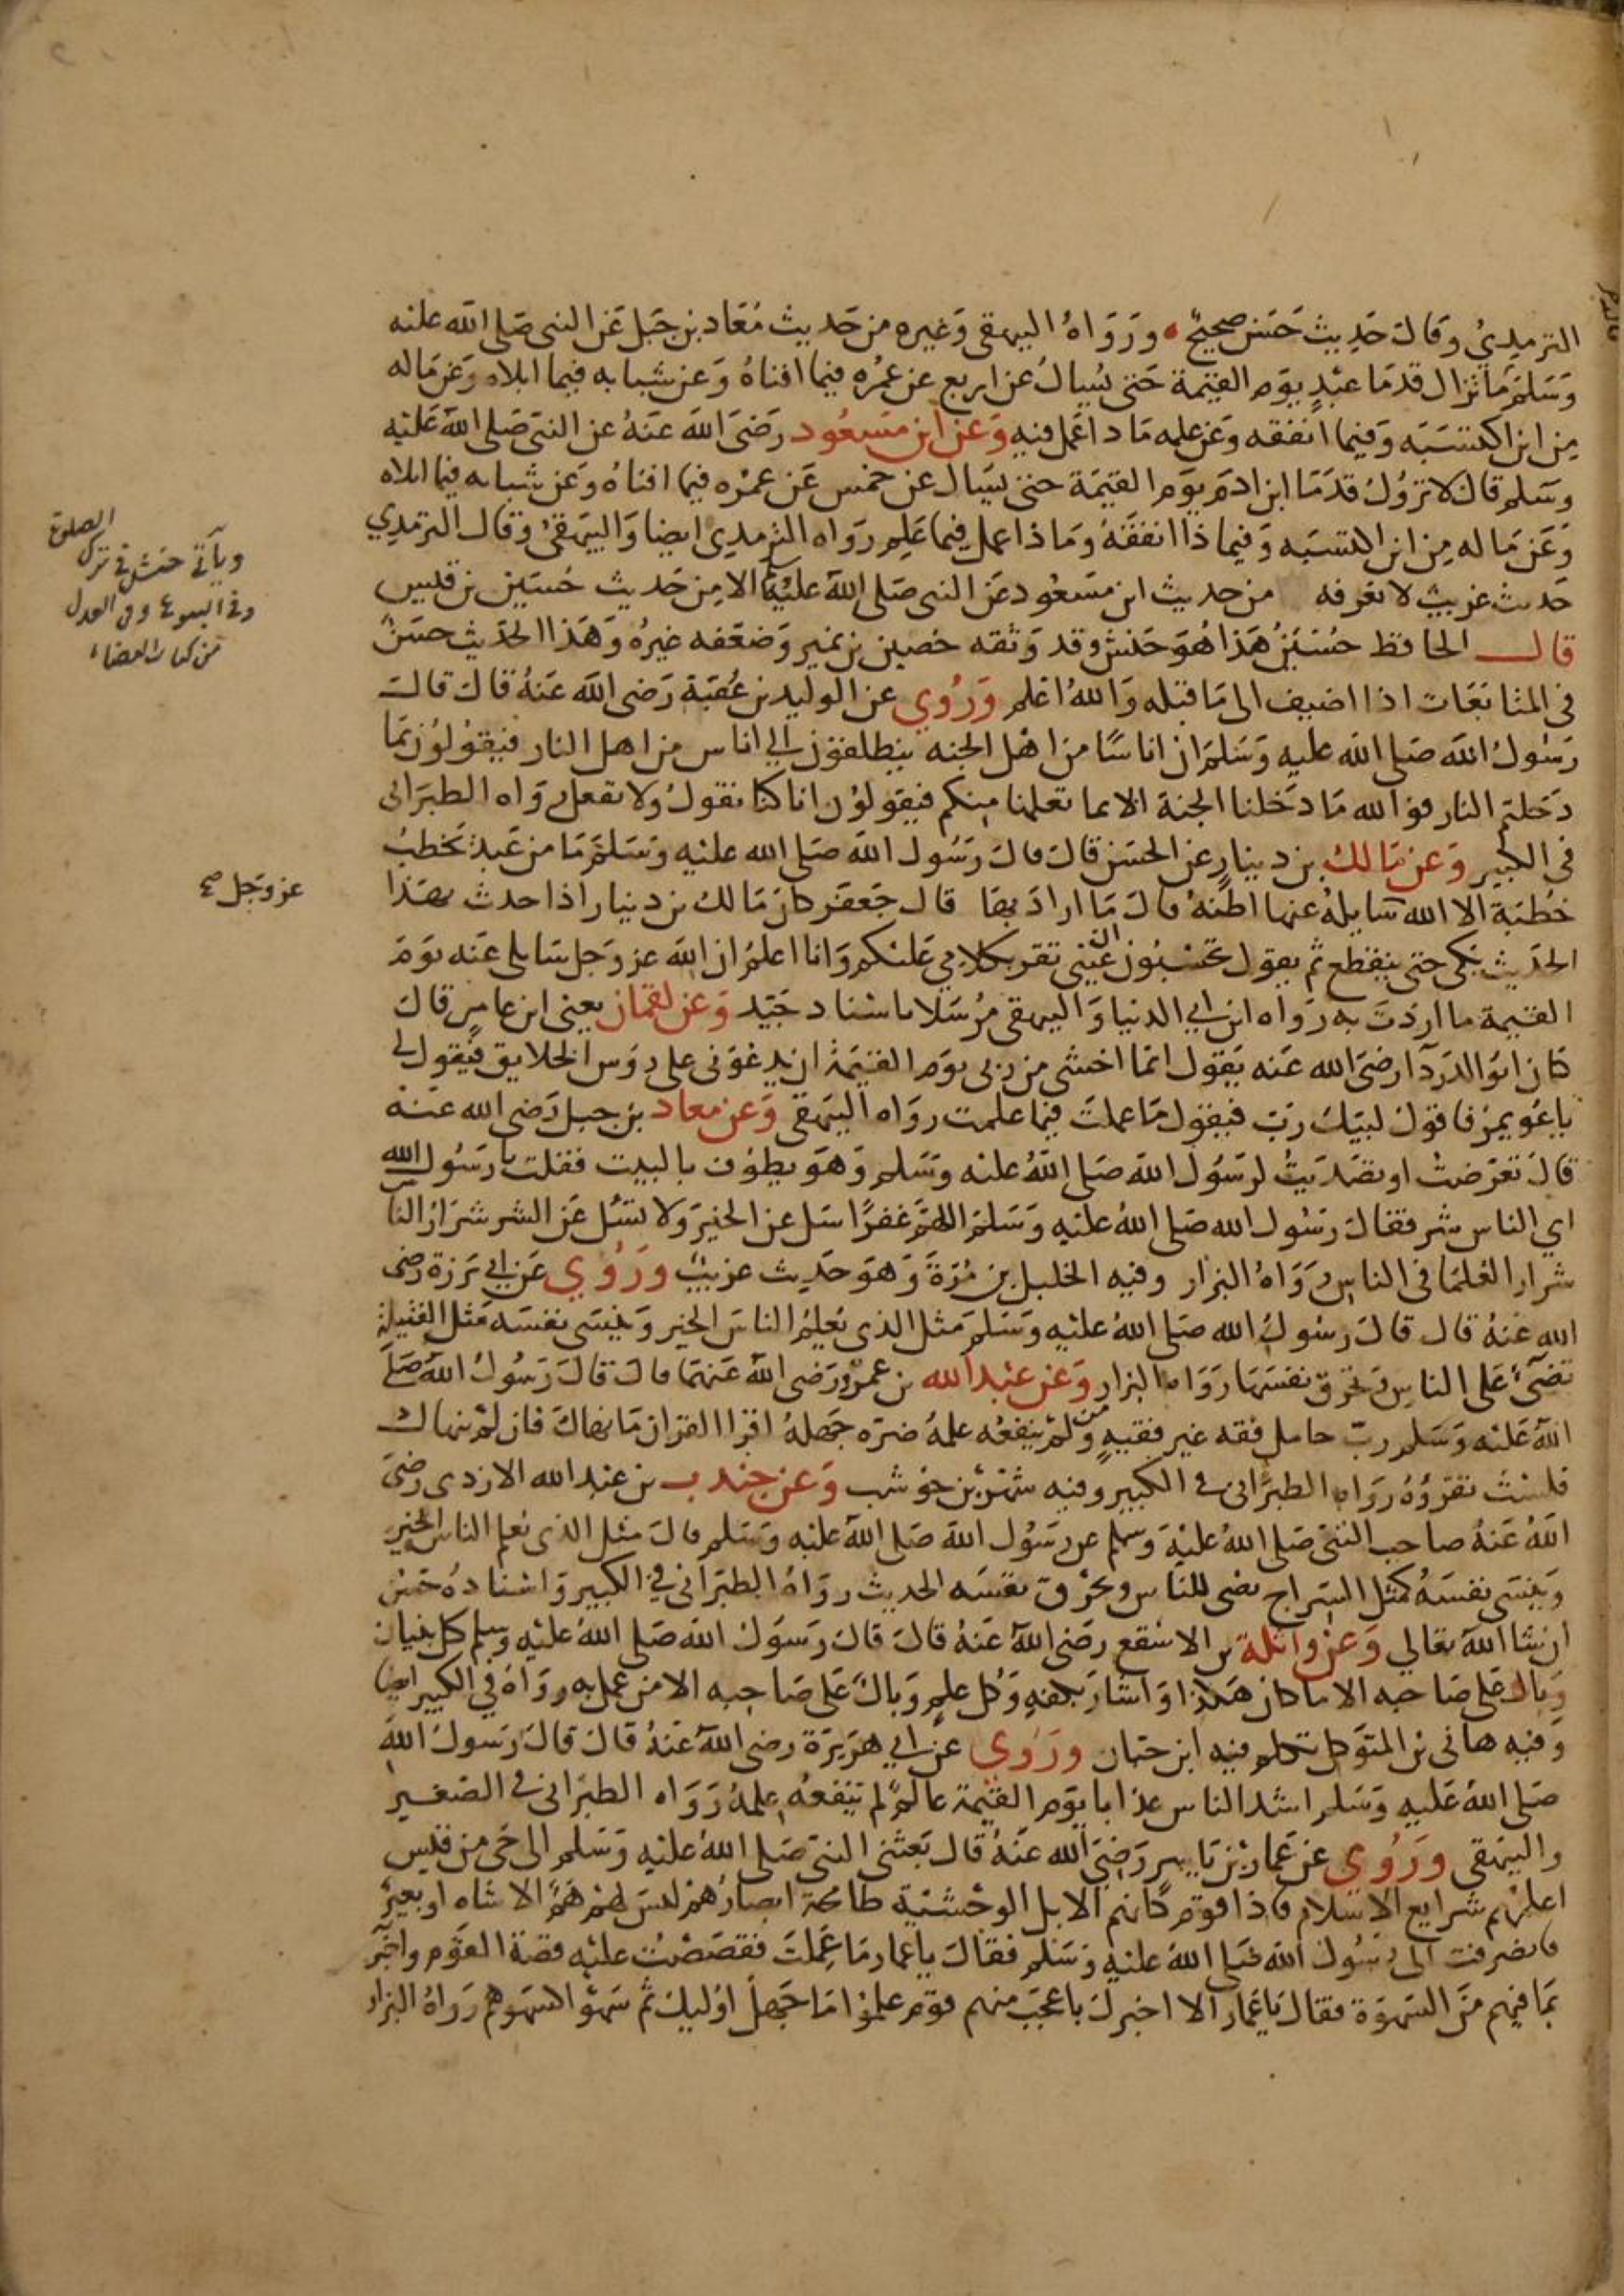 الترمذي وقال حديث حسن صحيح ورواه البيهقى وغيره من حديث معاذ بن جبل عن النبى صلى الله عليه
وسلم ما تزال قدما عبد يوم القيمة حتى يسال عن اربع عن عمره فيما افناه وعن شبابه فيما ابلاه وعن ماله
من اين اكتسبه وفيما انفقه وعن علمه ماذا عمل فيه وعن ابن مسعود رضى الله عنه عن النبى صلى الله عليه
وسلم قال لا تزول قدما ابن ادم يوم القيمة حتى يسال عن خمس عن عمره فيما افناه وعن شبابه فيما ابلاه
وعن ماله من اين اكتسبه وفيما ذا انفقه وماذا عمل فيما علم رواه الترمدي ايضا والبيهقى وقال الترمدي
حديث غريب لا نعرفه من حديث ابن مسعود عن النبى صلى الله عليه وسلم الا من حديث حسين بن قيس
قال الحافظ حسين هذا هو حنش وقد وثقه حصين بن نمير وضعفه غيره وهذا الحديث حسن
فى المتابعات اذا اضيف الى ما قبله والله اعلم وروي عن الوليد بن عقبة رضى الله عنه قال قال
رسول الله صلى الله عليه وسلم ان اناسا من اهل الجنه ينطلقون الي اناس من اهل النار فيقولون بما
دخلتم النار فوالله ما دخلنا الجنة الا بما تعلمنا منكم فيقولون انا كنا نقول ولا نفعل رواه الطبرانى
فى الكبير وعن مالك بن دينار عن الحسن قال قال رسول الله صلى الله عليه وسلم ما من عبد يخطب
خطبة الا الله سايله عنها اظنه قال ما اراد بها قال جعفر كان مالك بن دينار اذا حدث بهذا
الحديث بكى حتى ينقطع ثم يقول تحسبون ان عينى تقر بكلامي عليكم وانا اعلم ان الله عز وجل سايلى عنه يوم
القيمة ما اردت به رواه ابن ابي الدنيا والبيهقى مرسلا باسناد جيد وعن لقمان يعنى ابن عامر قال
كان ابو الدردآ رضى الله عنه يقول انما اخشى من ربى يوم القيمة ان يدعونى على روس الخلايق فيقول لى
يا عويمر فاقول لبيك رب فيقول ما عملت فيما علمت رواه البيهقى وعن معاد بن جبل رضى الله عنه
قال تعرضت او تصديت لرسول الله صلى الله عليه وسلم وهو يطوف بالبيت فقلت يا رسول الله
اي الناس شر فقال رسول الله صلى الله عليه وسلم اللهم غفرا سل عن الخير ولا تسئل عن الشر شرار الناس
شرار العلما فى الناس رواه البزار وفيه الخليل بن مرة وهو حديث غريب وروي عن ابي برزة رضى
الله عنه قال قال رسول الله صلى الله عليه وسلم مثل الذى يعلم الناس الخير وينسى نفسه مثل الفتيلة
تضىء على الناس وتحرق نفسها رواه البزار وعن عبد الله بن عمرو رضى الله عنهما قال قال رسول الله صلى
الله عليه وسلم رب حامل فقه غير فقيه ومن لم ينفعه علمه ضره جهله اقرا القران ما نهاك فان لم ينهاك
فلست تقرؤه رواه الطبرانى فى الكبير وفيه شهر بن حوشب وعن جندب بن عبد الله الازدى رضى
الله عنه صاحب النبى صلى الله عليه وسلم عن رسول الله صلى الله عليه وسلم قال مثل الذى يعلم الناس الخير
وينسى نفسه كمثل السراج يضى للناس ويحرق نفسه الحديث رواه الطبرانى فى الكبير واسناده حسن
ان شا الله تعالي وعن واثلة بن الاسقع رضى الله عنه قال قال رسول الله صلى الله عليه وسلم كل بنيان
وبال على صاحبه الا ما كان هكذا واشار بكفه وكل علم وبال على صاحبه الا من عمل به رواه فى الكبير ايضا
وفيه هانى بن المتوكل تكلم فيه ابن حبان وروي عن ابي هريرة رضى الله عنه قال قال رسول الله
صلى الله عليه وسلم اشد الناس عذابا يوم القيمة عالم لم ينفعه علمه رواه الطبرانى فى الصغير
والبيهقى وروي عن عمار بن ياسر رضى الله عنه قال بعثنى النبى صلى الله عليه وسلم الى حى من قيس
اعلمهم شرايع الاسلام فاذا قوم كانهم الابل الوحشية طامحة ابصارهم ليس لهم هم الا شاه او بعير
فانصرفت الى رسول الله صلى الله عليه وسلم فقال يا عمار ما عملت فقصصت عليه قصة القوم واخبر
بما فيهم من السهوة فقال يا عمار الا اخبرك باعجب منهم قوم علموا ما جهل اوليك ثم سهوا كسهوهم رواه البزار
ويأتي حنش في ترك الصلوة
وفي البيوع وفي العدل
من كتاب القضاء
عز وجل صح